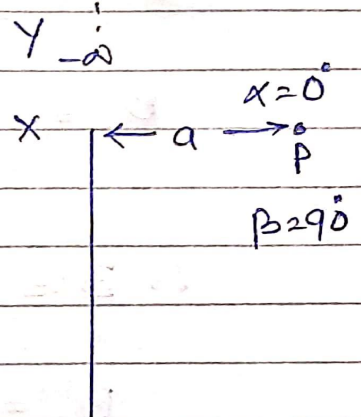 Y -∞
α=0°
X ← a → P
β=90°